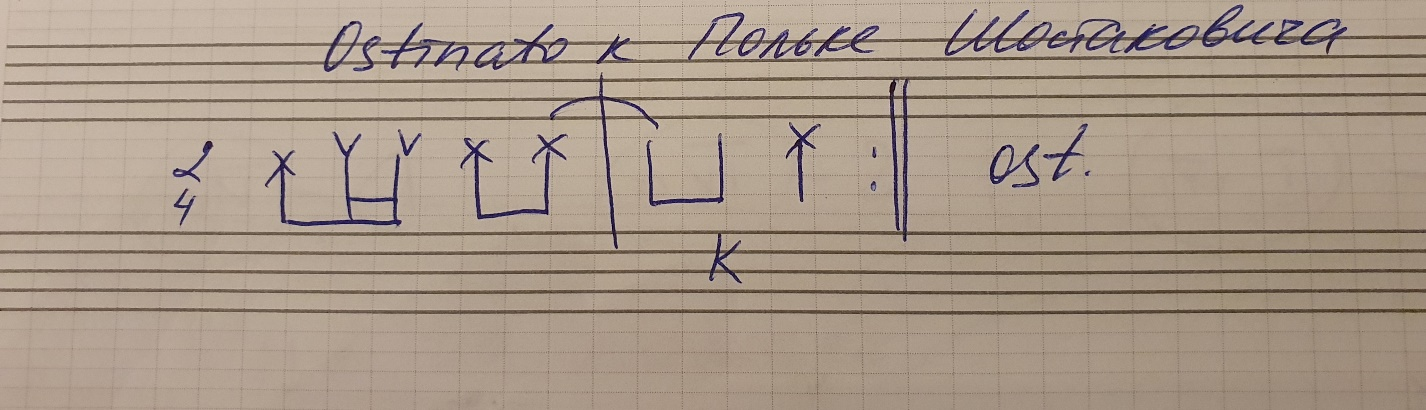 Ostinato к Польке Шостаковича
2
4
ost.
К